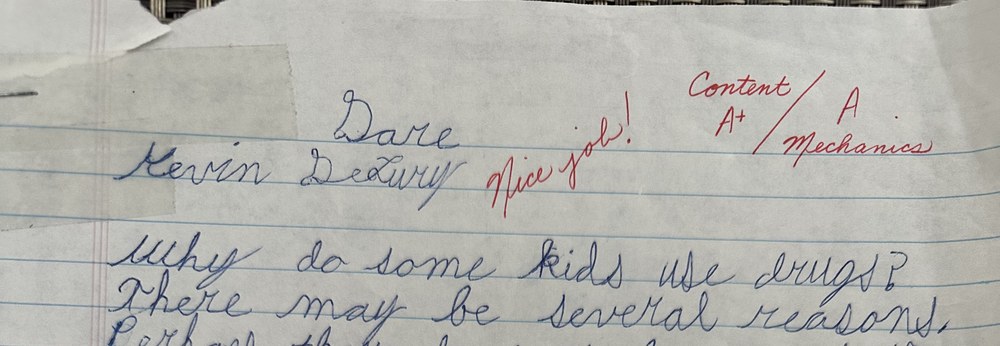 Dare
Content / A
A+ / Mechanics
Kevin DeLury
Nice job!
Why do some kids use drugs?
There may be several reasons.
Perhaps